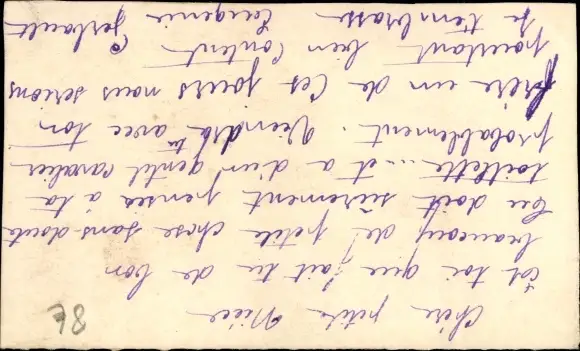 Chère petite Nièce
et toi que fait tu de bon
beaucoup de petite chose sans doute
tu doit sûrement penser à ta
toilette... et a d'un gentil cavalier
probablement. Viendra tu avec ton
frère un de ces jours nous serions
pourtant bien content
Je t'embrasse Eugenie
78